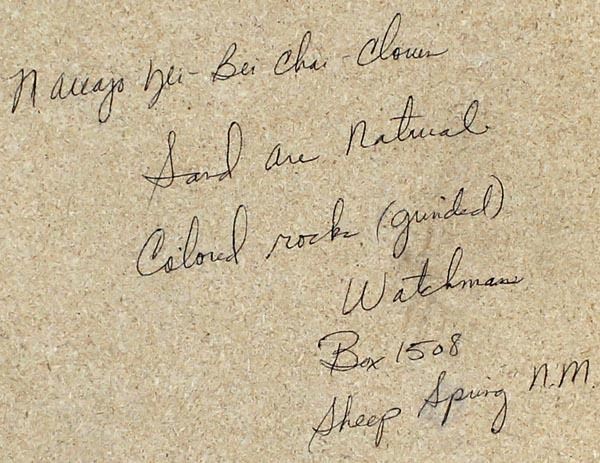 Navajo Yei-Bei Chai-Clown
Sand are Natrual
Colored rocks (grinded)
Watchman
Box 1508
Sheep Spring N.M.